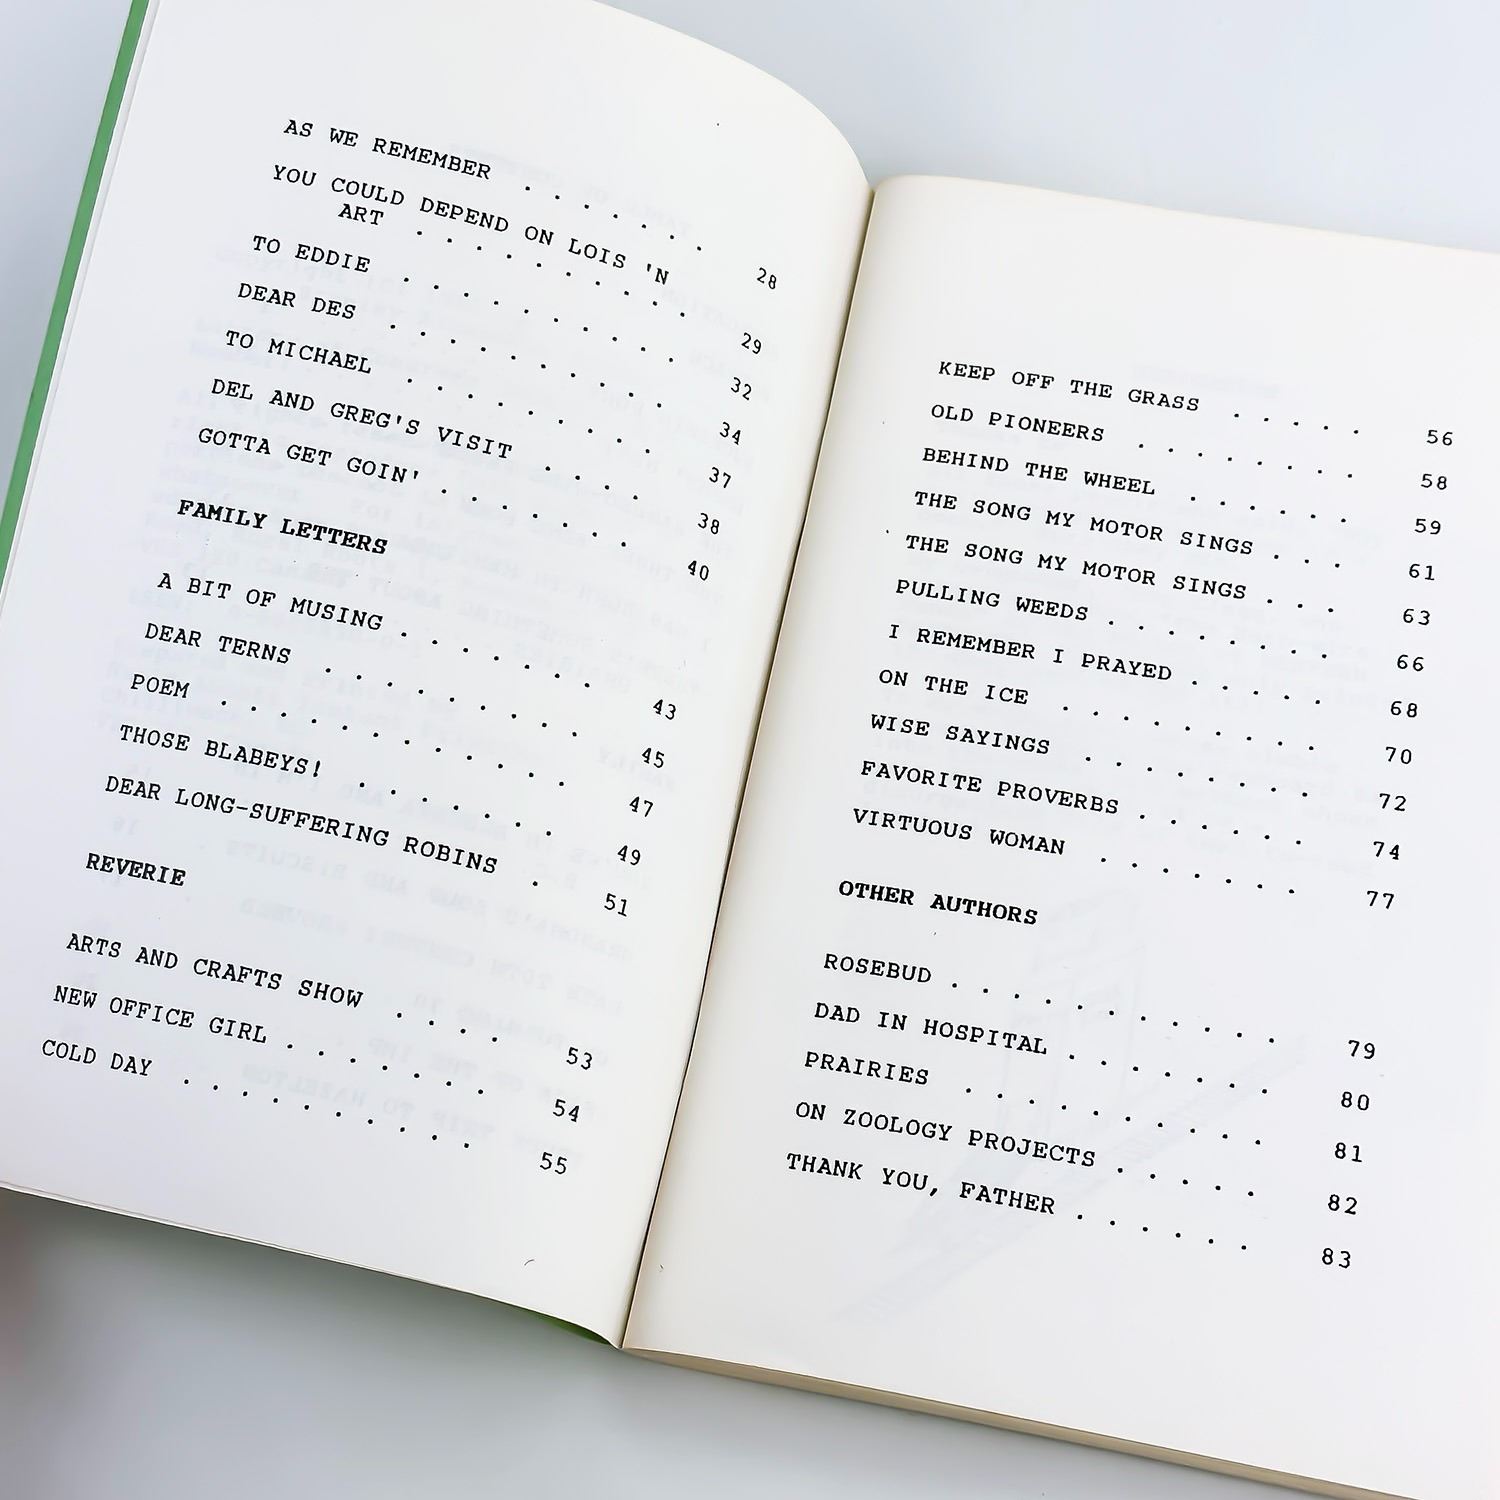 AS WE REMEMBER . . . . . . . 28
YOU COULD DEPEND ON LOIS 'N
ART . . . . . . . . . . 29
TO EDDIE . . . . . . . . . . 32
DEAR DES . . . . . . . . . . 34
TO MICHAEL . . . . . . . . . 37
DEL AND GREG'S VISIT . . . . 38
GOTTA GET GOIN' . . . . . . . 40
FAMILY LETTERS
A BIT OF MUSING . . . . . . . 43
DEAR TERNS . . . . . . . . . 45
POEM . . . . . . . . . . . . 47
THOSE BLABEYS! . . . . . . . 49
DEAR LONG-SUFFERING ROBINS . 51
REVERIE
ARTS AND CRAFTS SHOW . . . . 53
NEW OFFICE GIRL . . . . . . . 54
COLD DAY . . . . . . . . . . 55
KEEP OFF THE GRASS . . . . . 56
OLD PIONEERS . . . . . . . . 58
BEHIND THE WHEEL . . . . . . 59
THE SONG MY MOTOR SINGS . . . 61
THE SONG MY MOTOR SINGS . . . 63
PULLING WEEDS . . . . . . . . 66
I REMEMBER I PRAYED . . . . . 68
ON THE ICE . . . . . . . . . 70
WISE SAYINGS . . . . . . . . 72
FAVORITE PROVERBS . . . . . . 74
VIRTUOUS WOMAN . . . . . . . 77
OTHER AUTHORS
ROSEBUD . . . . . . . . . . . 79
DAD IN HOSPITAL . . . . . . . 80
PRAIRIES . . . . . . . . . . 81
ON ZOOLOGY PROJECTS . . . . . 82
THANK YOU, FATHER . . . . . . 83